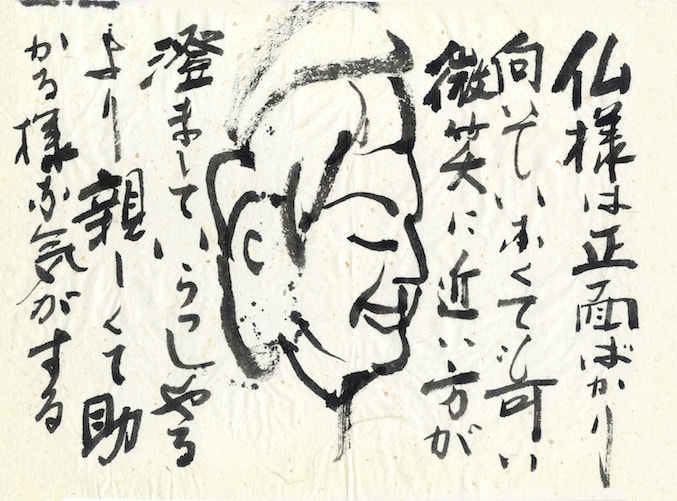 仏様は正面ばかり
向いていなくても可い
微笑に近い方が
澄ましていらっしゃる
より親しくて助
かる様な気がする